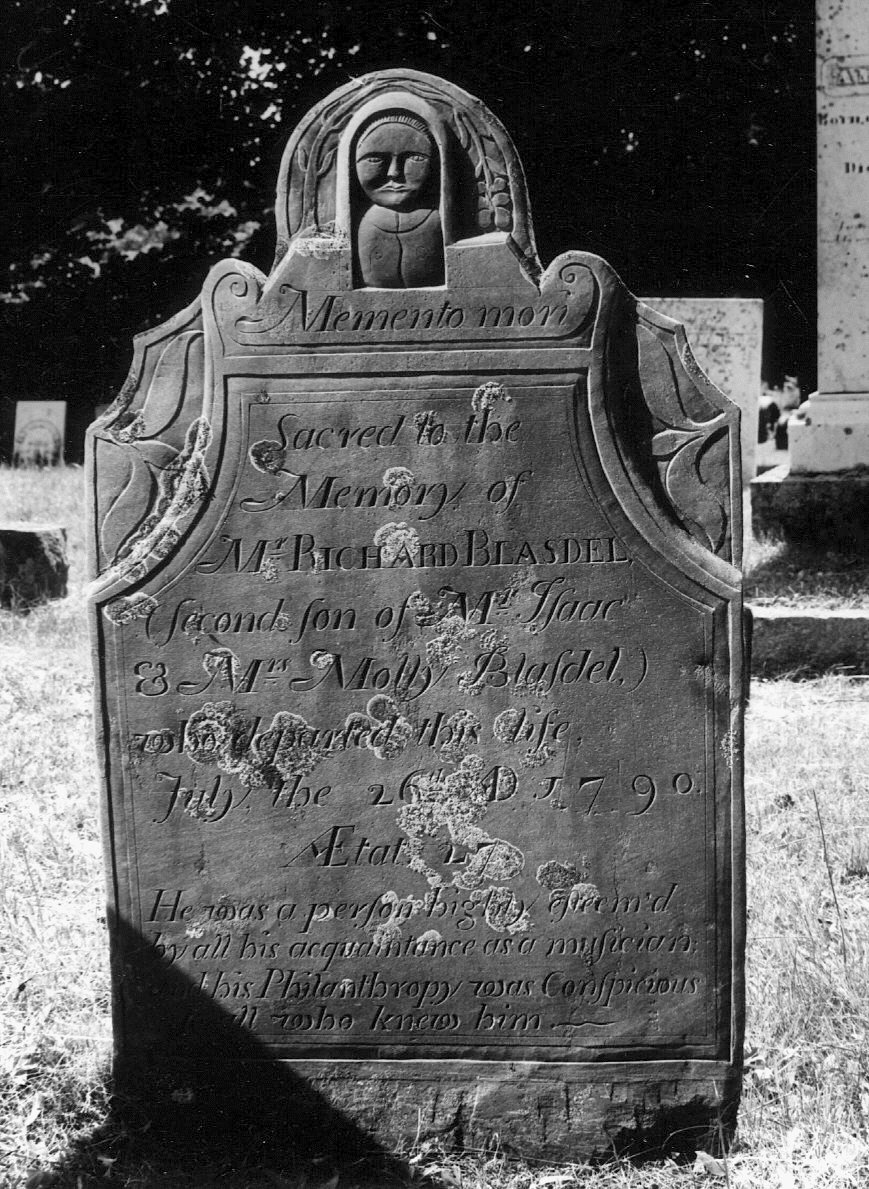 Memento mori
Sacred to the
Memory of
Mr. RICHARD BLASDEL,
(ſecond ſon of Mr. Iſaac
& Mrs. Molly Blaſdel,)
who departed this life,
July, the 26th AD 1790.
Ætat. 27
He was a perſon highly eſteem'd
by all his acquaintance as a muſician;
and his Philanthropy was Conſpicious
to all who knew him
Born
Die